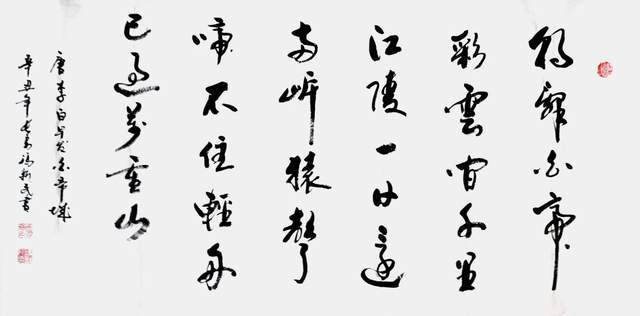 朝辭白帝
彩雲間千里
江陵一日還
兩岸猿聲
啼不住輕舟
已過萬重山
唐李白早发白帝城
辛丑年書